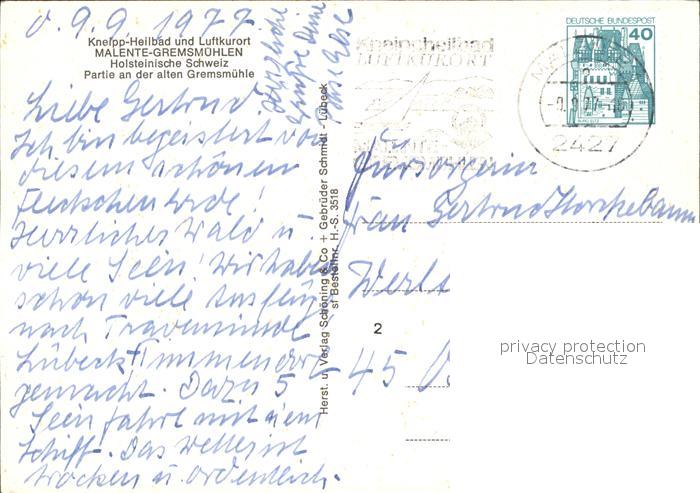 d. 9.9.1977
Kneipp-Heilbad und Luftkurort
MALENTE-GREMSMÜHLEN
Holsteinische Schweiz
Partie an der alten Gremsmühle
Liebe Gertrud.
Ich bin begeistert von
diesem schönen
Fleckchen Erde!
Herrliches Wald u
viele Seen! Wir haben
schon viele Ausflüge
nach Travemünde
Lübeck + Timmendorf
gemacht. Dazu 5
Seen fahrt mit dem
Schiff. Das Wetter ist
trocken u. ordentlich.
Herzliche
Grüße Deine
Herst. u. Verlag Schöning & Co + Gebrüder Schmidt - Lübeck
Bestellnr. H.-S. 3518
Kneippheilbad
LUFTKURORT
DEUTSCHE BUNDESPOST
40
2427
Fürsorgerin
Frau Gertrud
2
45
privacy protection
Datenschutz